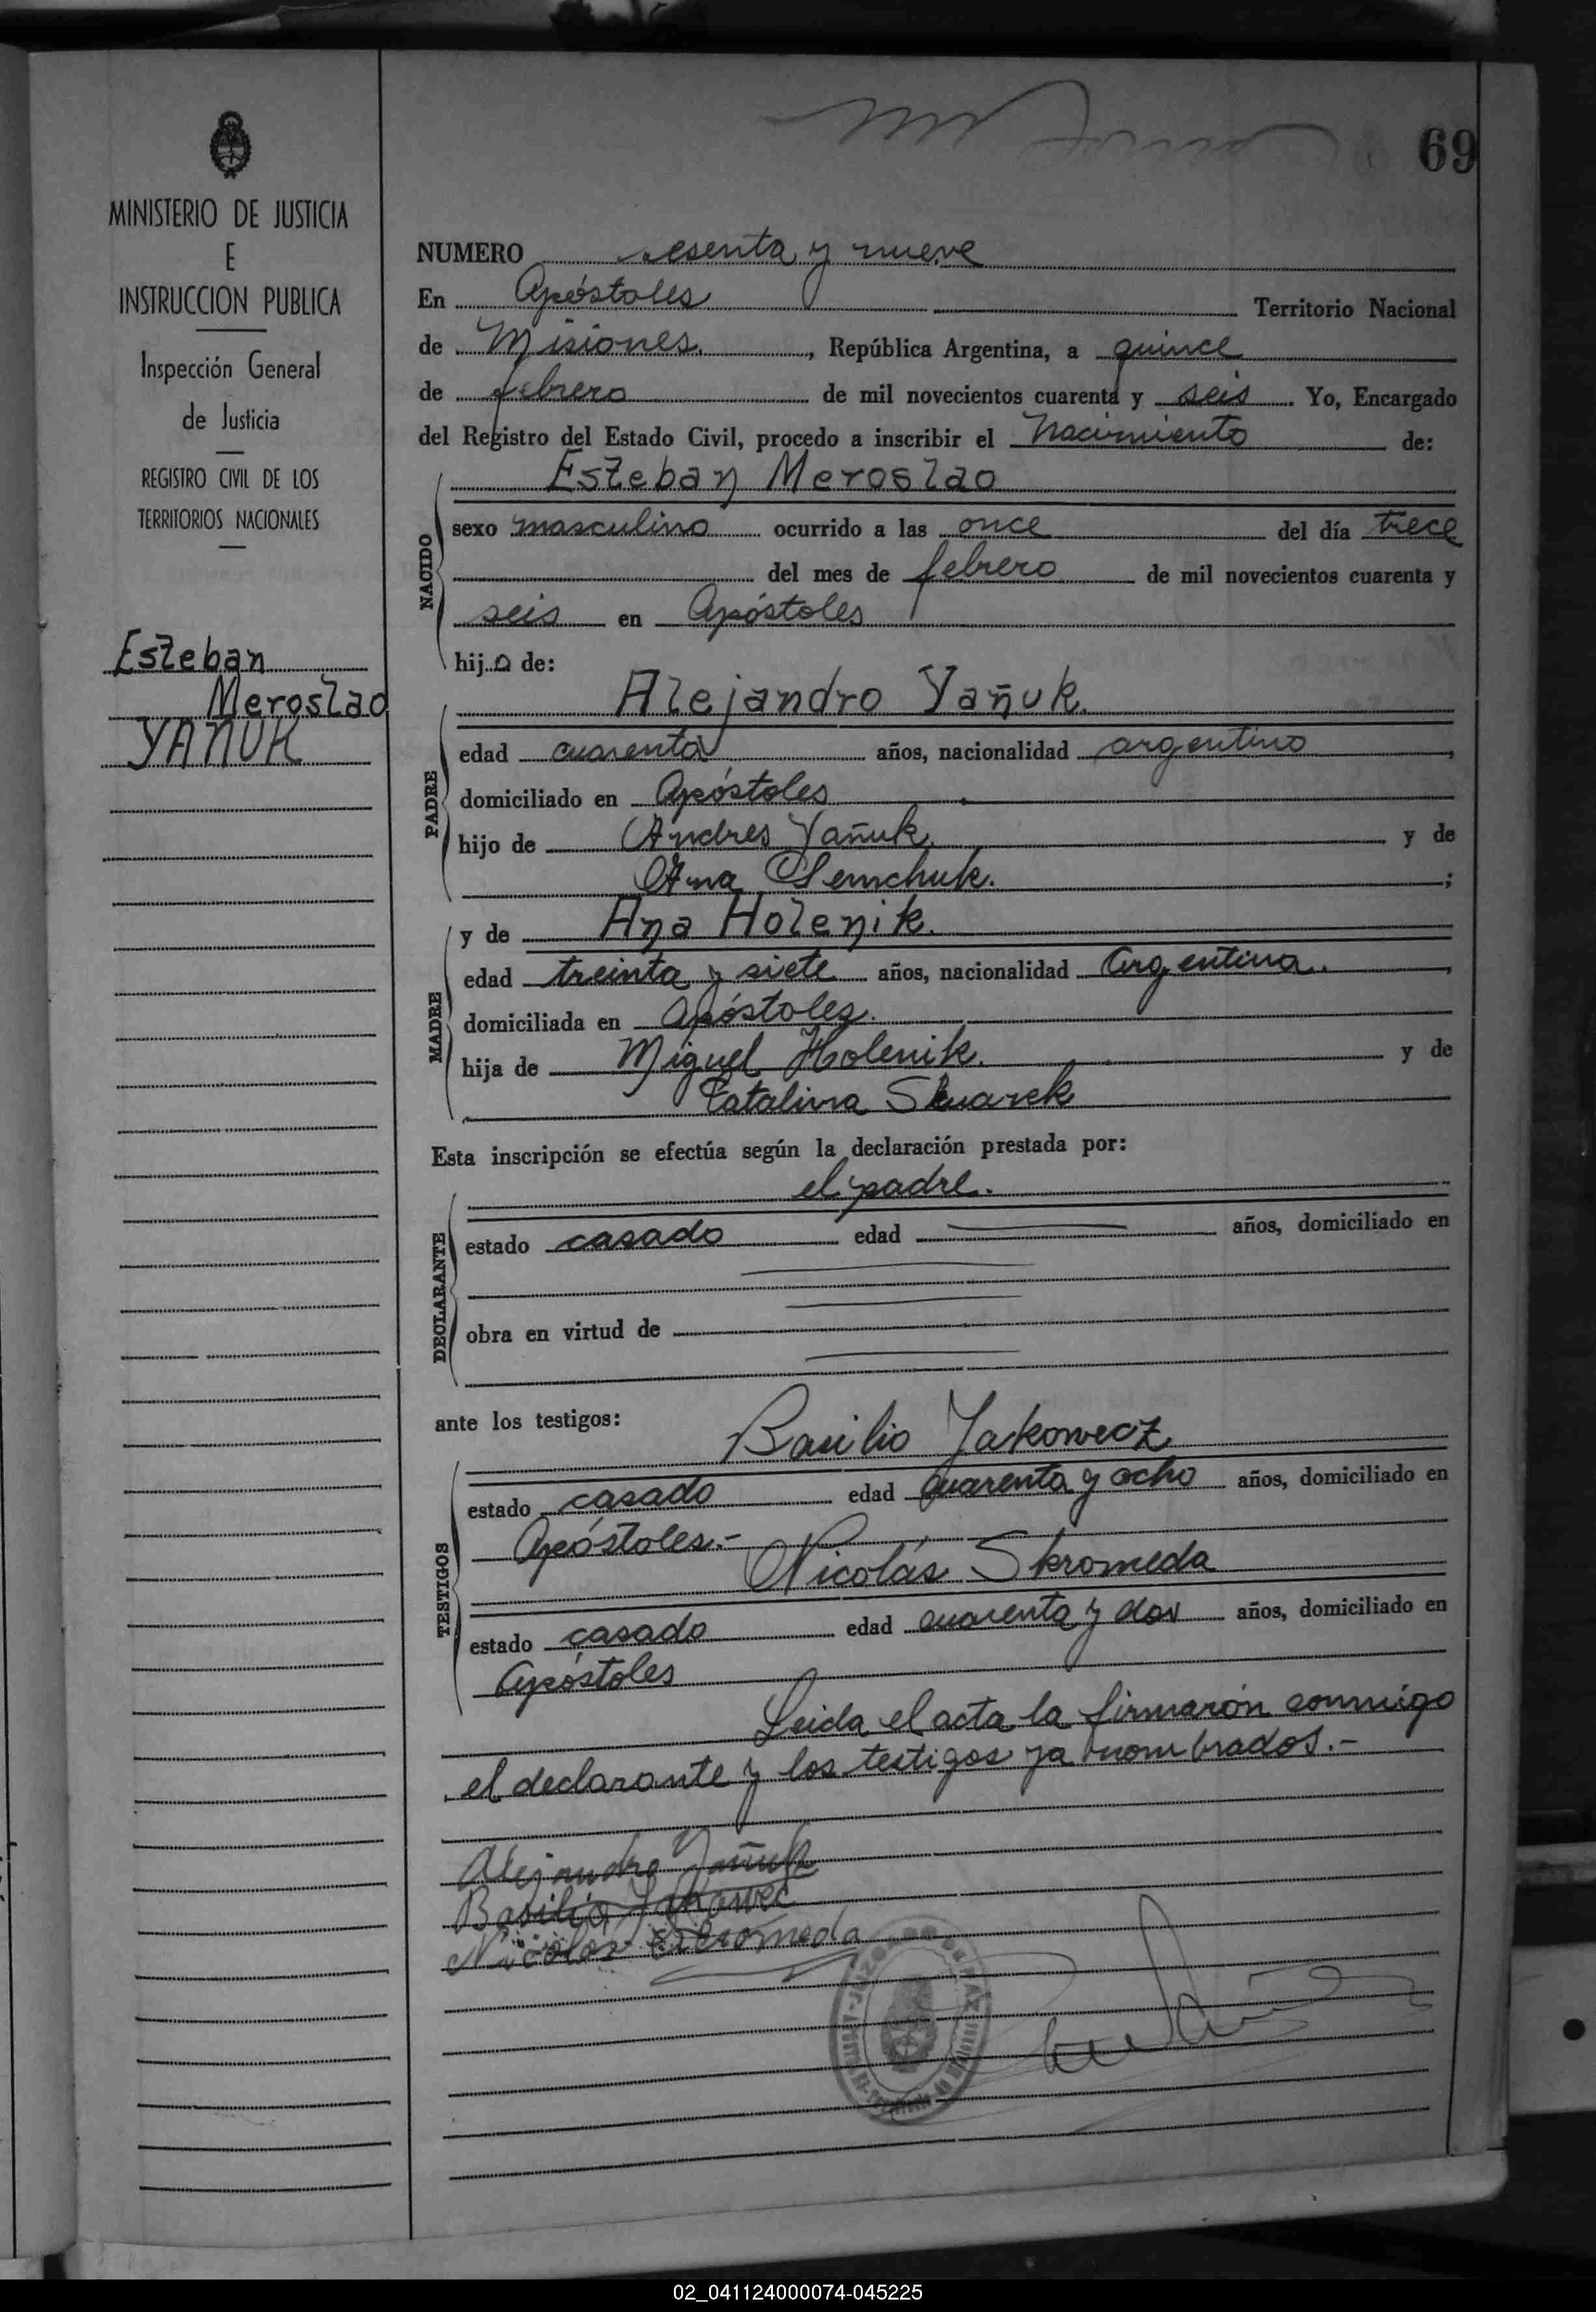 69
MINISTERIO DE JUSTICIA
E
INSTRUCCION PUBLICA
Inspección General
de Justicia
REGISTRO CIVIL DE LOS
TERRITORIOS NACIONALES
Esteban
Meroslao
YAÑUK
NUMERO sesenta y nueve
En Apóstoles Territorio Nacional
de Misiones, República Argentina, a quince
de febrero de mil novecientos cuarenta y seis. Yo, Encargado
del Registro del Estado Civil, procedo a inscribir el Nacimiento de:
Esteban Meroslao
NACIDO
sexo masculino ocurrido a las once del día trece
del mes de febrero de mil novecientos cuarenta y
seis en Apóstoles
hijo de:
Alejandro Yañuk.
PADRE
edad cuarenta años, nacionalidad argentino,
domiciliado en Apóstoles
hijo de Andres Yañuk y de
Ana Semchuk. ;
y de Ana Holenik.
MADRE
edad treinta y siete años, nacionalidad Argentina.,
domiciliada en Apóstoles.
hija de Miguel Holenik. y de
Catalina
Esta inscripción se efectúa según la declaración prestada por:
el padre.
DECLARANTE
estado casado edad años, domiciliado en
obra en virtud de
ante los testigos:
Basilio Jakowecz
TESTIGOS
estado casado edad cuarenta y ocho años, domiciliado en
Apóstoles.-
Nicolás Skromeda
estado casado edad cuarenta y dos años, domiciliado en
Apóstoles
Leida el acta la firmarón conmigo
el declarante y los testigos ya nombrados.-
Alejandro Yañuk
Basilio Jakowec
Nicolas Skromeda
02_041124000074-045225